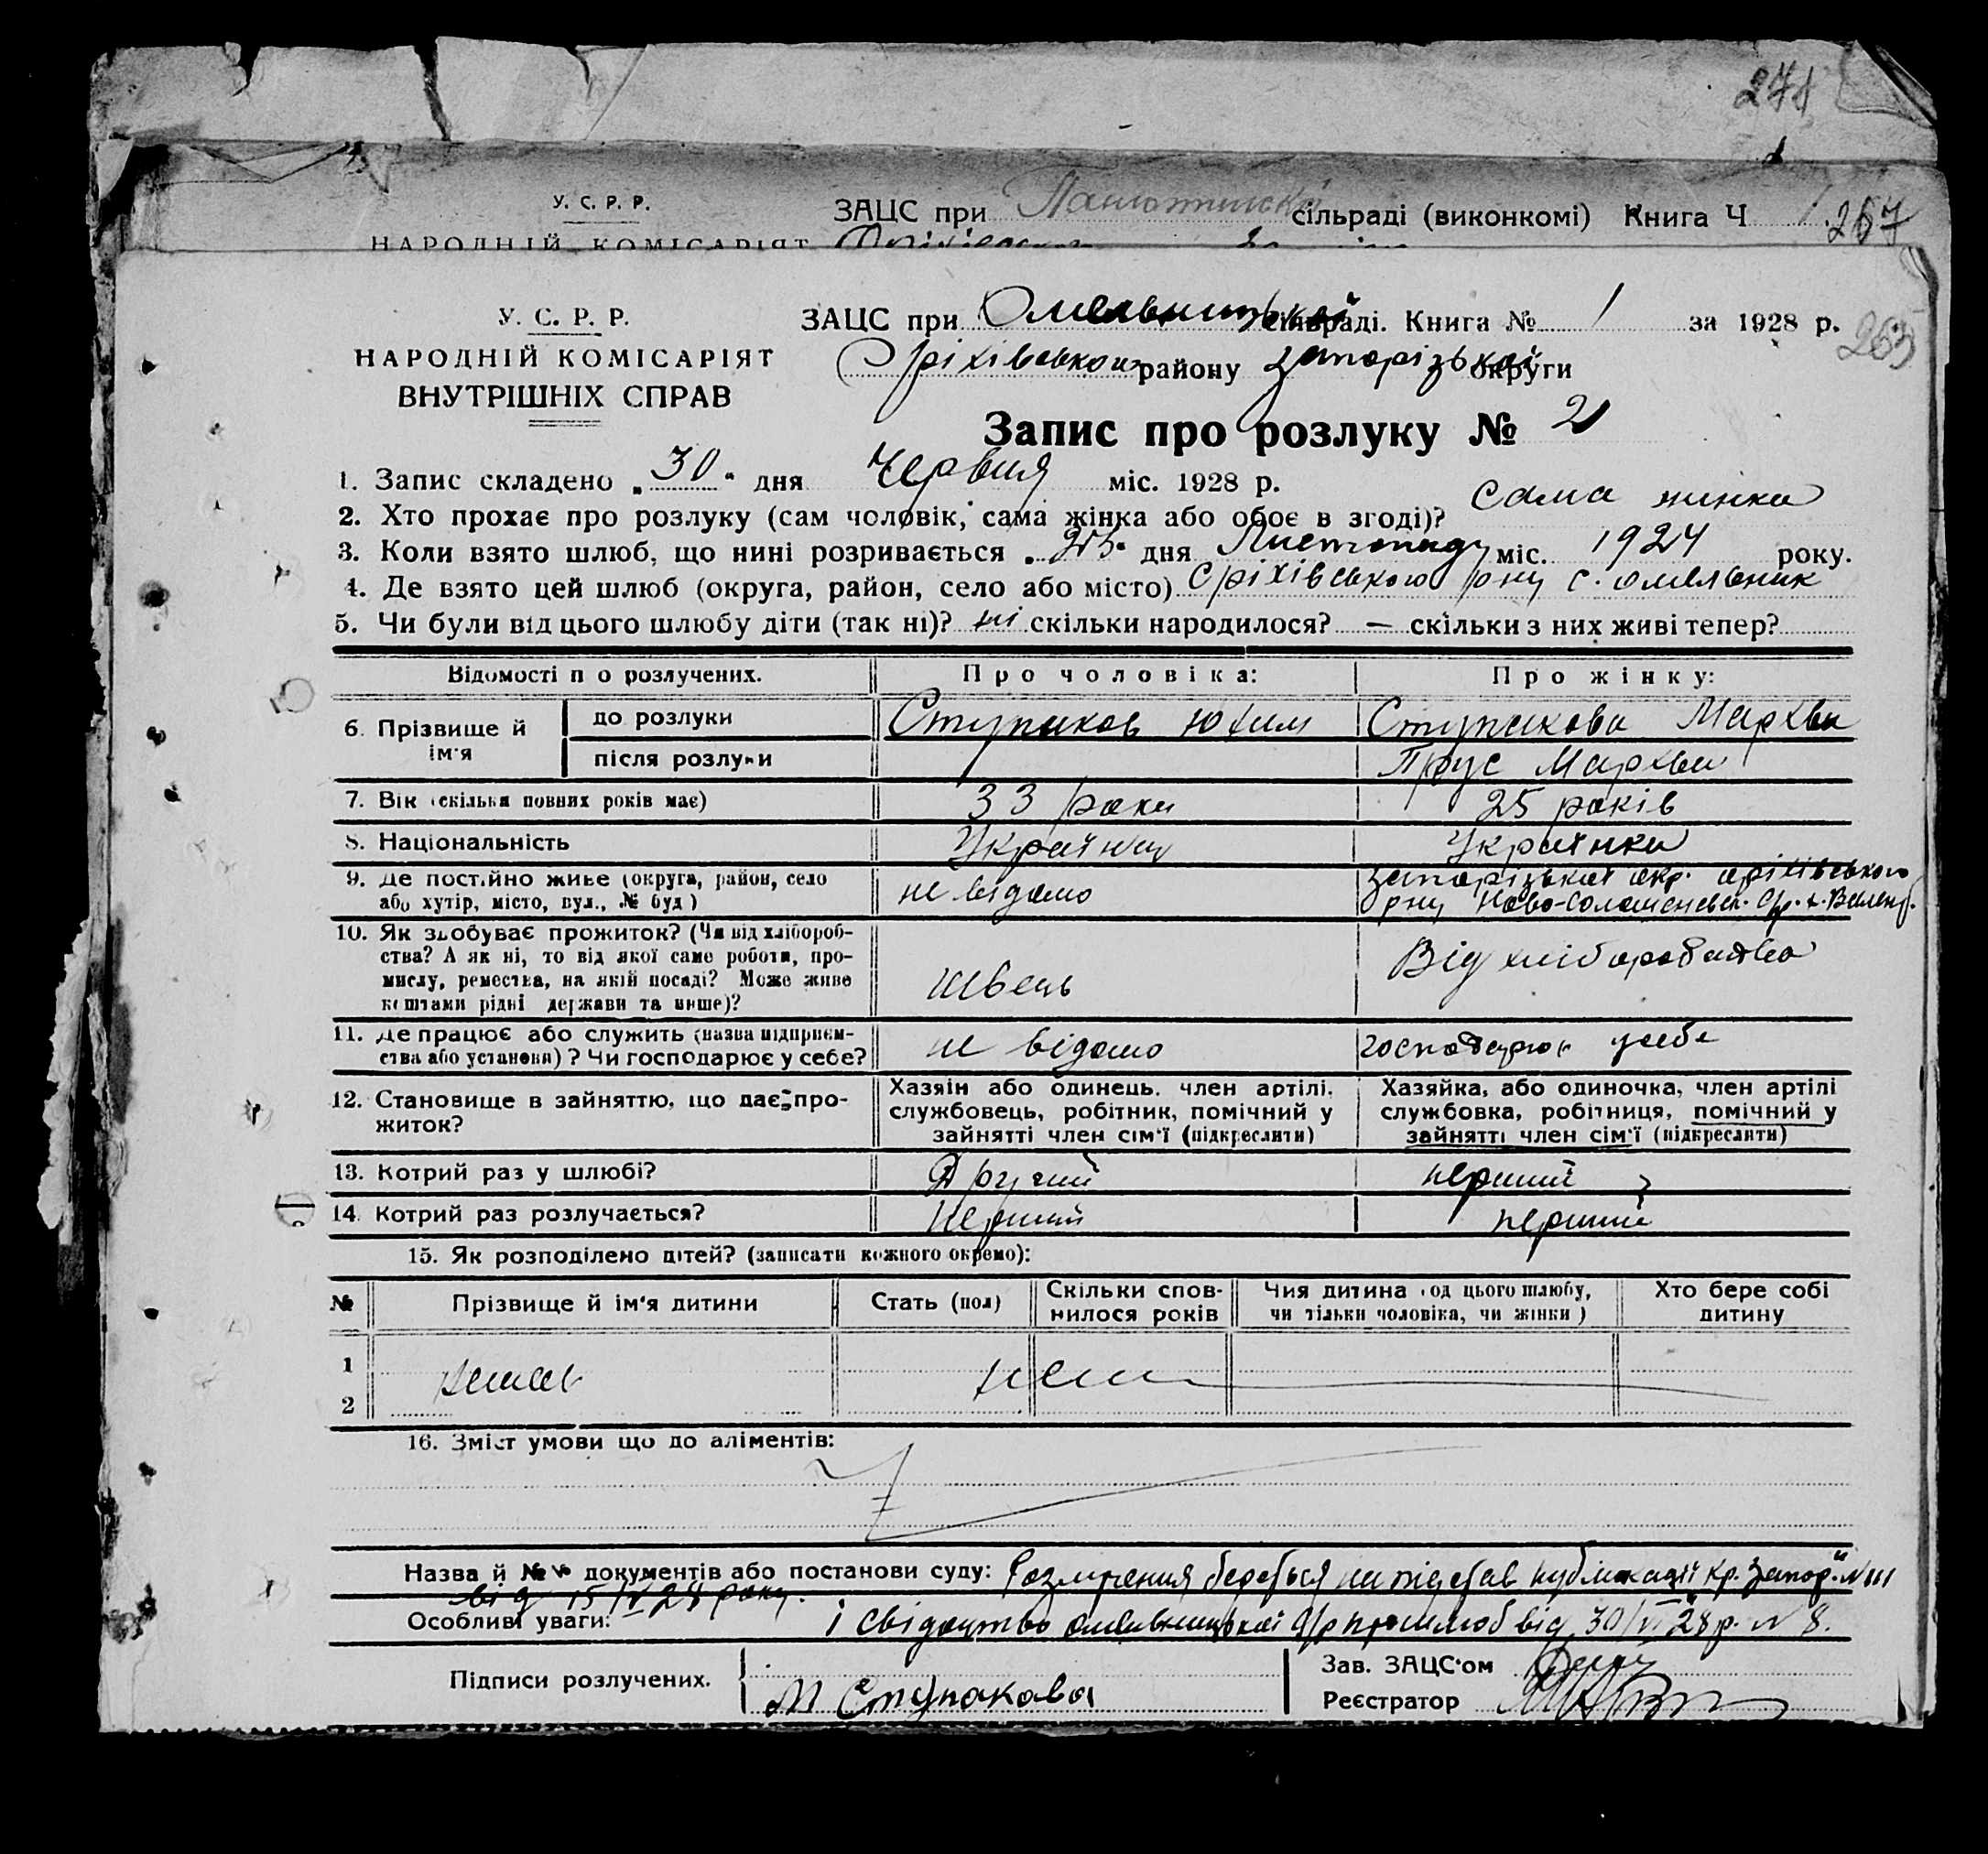 271
У. С. Р. Р.
ЗАЦС при сільраді (виконкомі) Книга Ч 1 267
НАРОДНІЙ КОМІСАРІЯТ
У. С. Р. Р.
ЗАЦС при Омельницькій сільраді. Книга № 1 за 1928 р.
265
НАРОДНІЙ КОМІСАРІЯТ
Оріхівського району Запорізької округи
ВНУТРІШНІХ СПРАВ
Запис про розлуку № 2
1. Запис складено „30" дня Червня міс. 1928 р.
2. Хто прохає про розлуку (сам чоловік, сама жінка або обоє в згоді)? сама жинка
3. Коли взято шлюб, що нині розривається „25" дня Листопаду міс. 1924 року.
4. Де взято цей шлюб (округа, район, село або місто) Оріхівського рну с. омельник
5. Чи були від цього шлюбу діти (так ні)? ні скільки народилося? — скільки з них живі тепер?
Відомості п о розлучених. Про чоловіка: Про жінку:
6. Прізвище й ім'я до розлуки Ступаков Юхим Ступакова Мархва
після розлуки Прус Мархва
7. Вік (скільки повних років має) 33 роки 25 років
8. Національність Українец Українка
9. Де постійно живе (округа, район, село або хутір, місто, вул., № буд) не відомо Запорізької окр. оріхівського
рну Ново-
10. Як здобуває прожиток? (Чи від хлібороб-
ства? А як ні, то від якої саме роботи, про-
мислу, ремества, на якій посаді? Може живе
коштами рідні держави та инше)? швець Від хліборобства
11. Де працює або служить (назва підприєм-
ства або установи)? Чи господарює у себе? не відомо господарює у себе
12. Становище в зайняттю, що дає про-
житок?
Хазяїн або одинець, член артілі,
службовець, робітник, помічний у
зайнятті член сім'ї (підкреслити)
Хазяйка, або одиночка, член артілі
службовка, робітниця, помічний у
зайнятті член сім'ї (підкреслити)
13. Котрий раз у шлюбі? Другий перший
14. Котрий раз розлучається? Перший перший
15. Як розподілено дітей? (записати кожного окремо):
№ Прізвище й ім'я дитини Стать (пол) Скільки спов-
нилося років Чия дитина (од цього шлюбу,
чи тільки чоловіка, чи жінки) Хто бере собі
дитину
1
2
16. Зміст умови що до аліментів:
Назва й №№ документів або постанови суду: береться на підстав публікації Кр. Запор." N 111
від 15/IV 28 року.
Особливі уваги: і свідоцтво омельницької с/р про шлюб від 30/VI 28 р. N 8.
Підписи розлучених. М Ступакова
Зав. ЗАЦС'ом
Реєстратор